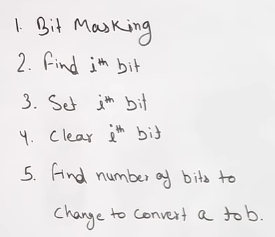 1. Bit Masking
2. Find ith bit
3. Set ith bit
4. Clear ith bit
5. Find number of bits to
change to convert a to b.